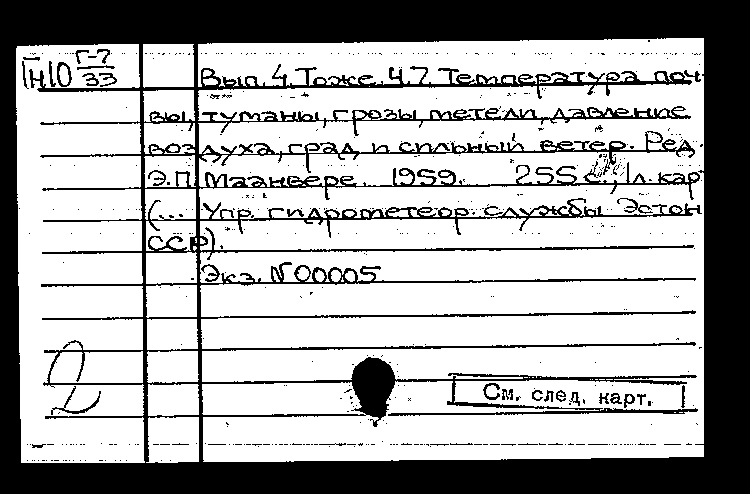 Гн10 Г-7/33
Вып. 4. Тоже. Ч.7. Температура поч-
вы, туманы, грозы, метели, давление
воздуха, град и сильный ветер. Ред.
Э.П. Маанвере. 1959. 255 с., 1л. кар
(... Упр. гидрометеор. службы Эстон
ССР).
Экз. №00005
2
См. след. карт.